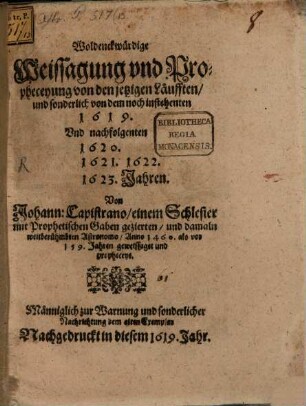 8
Woldenckwürdige
Weissagung vnd Pro-
pheceyung von den jetzigen Läufften/
und sonderlich von dem noch instehenten
1619.
Vnd nachfolgenten
1620.
1621. 1622.
1623. Jahren.
BIBLIOTHECA
REGIA
MONACENSIS.
R
Von
Johann: Capistrano/ einem Schlesier
mit Prophetischen Gaben gezierten / und damaln
weitberühmbten Astronomo / Anno 1460. als vor
159. Jahren geweissaget und
propheceyt.
Männiglich zur Warnung und sonderlicher
Nachrichtung dem alten Exemplar
Nachgedruckt in diesem 1619. Jahr.